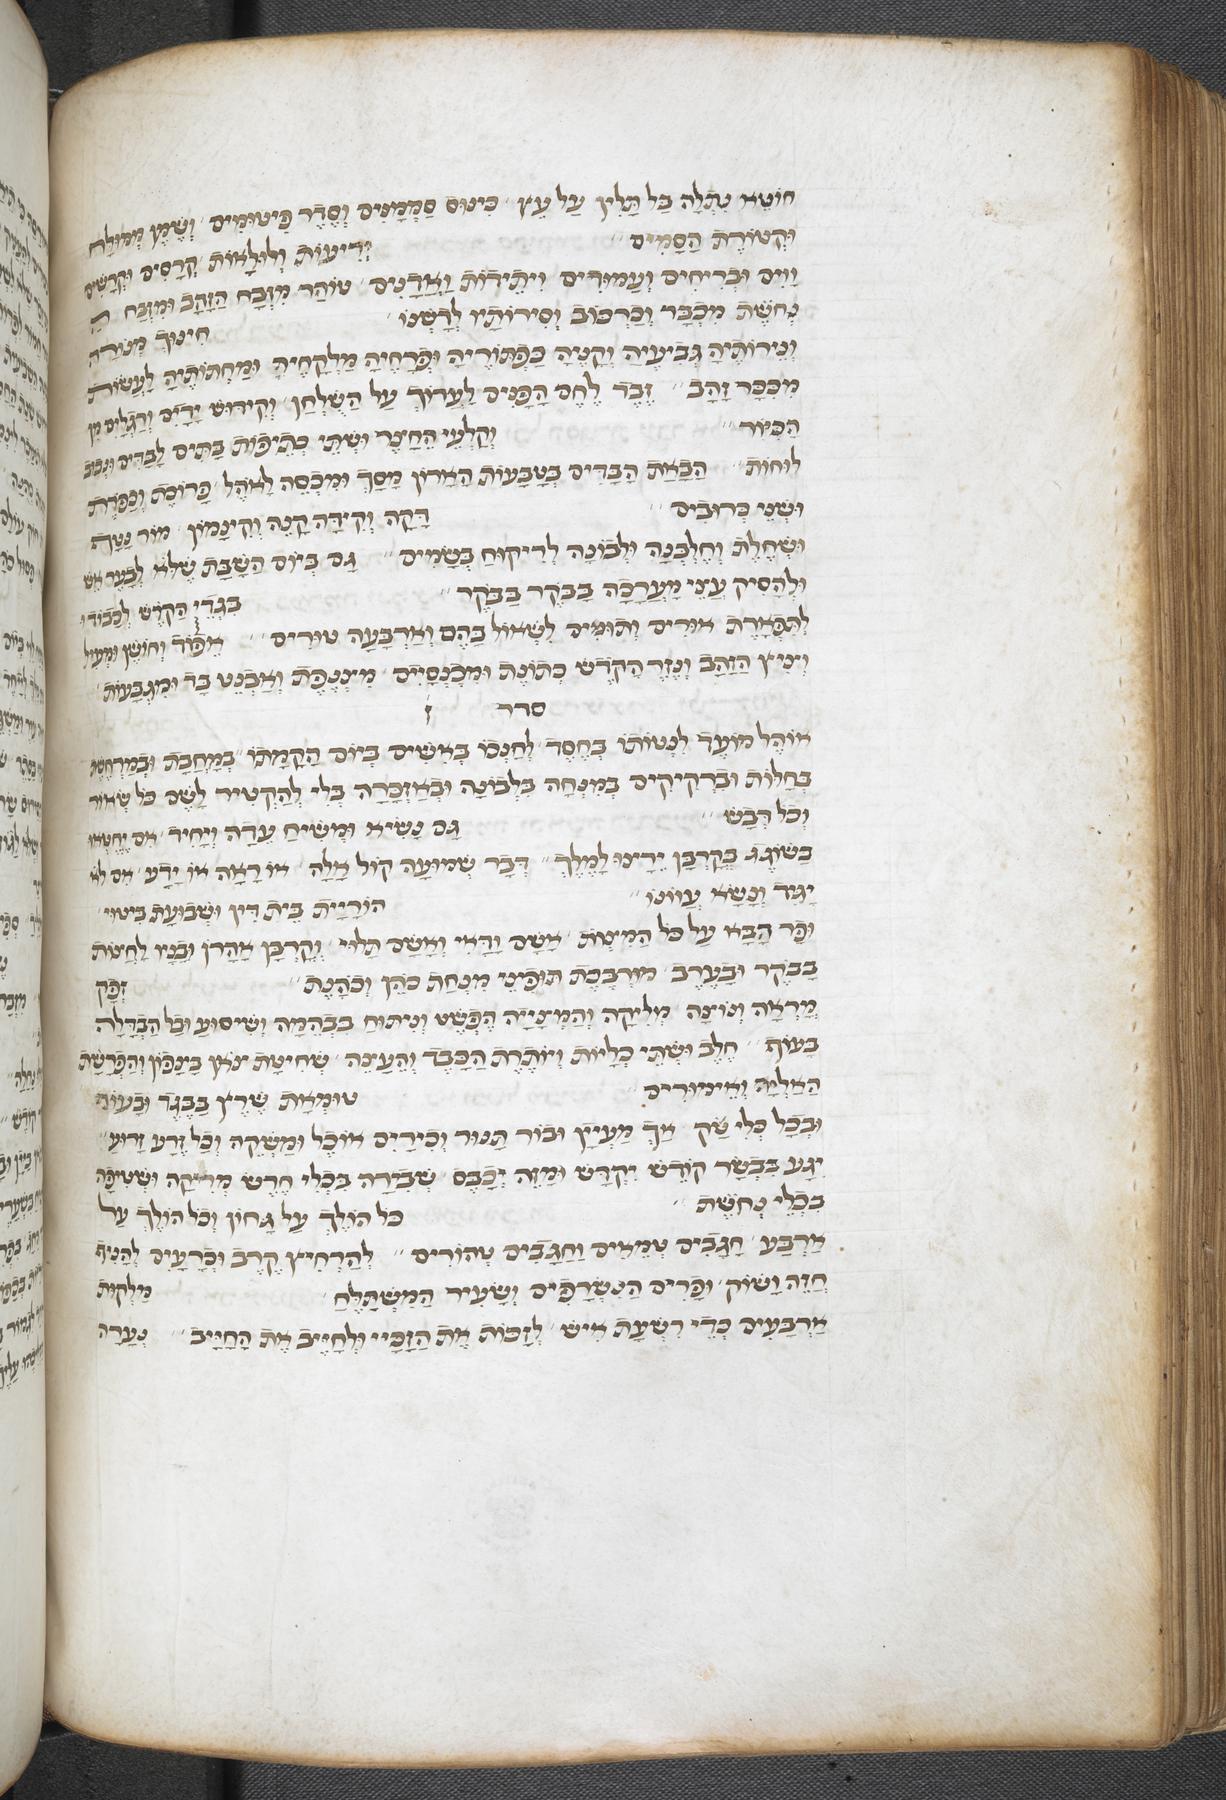 חוֹטֵא נִתְלָה בַּל תָּלִין עַל עֵץ כִּינוּס סַמְמָנִים וְסֶדֶר פִּיטוּמִים וְשֶׁמֶן מְמוּלָח
וּקְטוֹרֶת הַסַּמִּים יְרִיעוֹת וְלוּלָאוֹת קְרָסִים וּקְרָשִׁים
וָוִים וּבְרִיחִים וְעַמּוּדִים וִיתֵידוֹת וַאֲדָנִים טוֹהַר מִזְבַּח הַזָּהָב וּמִזְבַּח הַ
נְחֹשֶׁת מִכְבָּר וְכַרְכּוֹב וְסִירוֹתָיו לְדַשְּׁנוֹ חִינוּךְ מְנוֹרָה
וְנֵירוֹתֶיהָ גְּבִיעֶיהָ וְקָנֶיהָ כַּפְתּוֹרֶיהָ וּפְרָחֶיהָ מַלְקָחֶיהָ וּמַחְתּוֹתֶיהָ לַעֲשׂוֹת
מִכִּכָּר זָהָב זֶבֶד לֶחֶם הַפָּנִים לַעֲרוֹךְ עַל הַשֻּׁלְחָן וְקִידּוּשׁ יָדַיִם וְרַגְלַיִם מִן
הַכִּיּוֹר וְקַלְעֵי הֶחָצֵר וּשְׁתֵּי כְתֵיפוֹת בָּתִּים לַבַּדִּים וּנְבוּב
לוּחוֹת הֲבָאַת הַבַּדִּים בְּטַבְּעוֹת הָאָרוֹן מָסַךְ וּמִכְסֶה לָאֹהֶל פָּרוֹכֶת וְכַפֹּרֶת
וּשְׁנֵי כְּרוּבִים דַּקָּה וְקִידָּה קָנֶה וְקִינָּמוֹן מוֹר נָטָף
וּשְׁחֵלֶת וְחֶלְבְּנָה וּלְבוֹנָה לְרִיקּוּחַ בְּשָׂמִים גַּם בְּיוֹם הַשַּׁבָּת שֶׁלֹּא לְבַעֵר אֵשׁ
וּלְהַסִּיק עֲצֵי מַעֲרָכָה בַּבֹּקֶר בַּבֹּקֶר בִּגְדֵי הַקֹּדֶשׁ לְכָבוֹד וּ
לְתִפְאֶרֶת אוּרִים וְתוּמִּים לִשְׁאוֹל בָּהֶם וְאַרְבָּעָה טוּרִים אֵפוֹד וְחוֹשֶׁן וּמְעִיל
וְצִיץ הַזָּהָב וְנֵזֶר הַקֹּדֶשׁ כְּתוֹנֶת וּמִכְנָסַיִם מִצְנֶפֶת וְאַבְנֵט בַּד וּמִגְבָּעוֹת
סדר ז
אוֹהֶל מוֹעֵד לִנְטוֹתוֹ בְּחֶסֶד לְחַנְּכוֹ בְּאִשִּׁים בְּיוֹם הֲקָמָתוֹ בְּמַחֲבַת וּבְמַרְחֶשֶׁת
בְּחַלּוֹת וּבִרְקִיקִים בְּמִנְחָה בִּלְבוֹנָה וּבְאַזְכָּרָה בְּלִי לְהַקְטִיר לַשֵּׁם כֹּל שְׂאוֹר
וְכֹל דְּבַשׁ גַּם נָשִׂיא וּמְשִׁיחַ עֵדָה וְיָחִיד אִם יֶחֶטְאוּ
בְּשׁוֹגֵג בְּקָרְבָּן יְרַצּוּ לַמֶּלֶךְ דְּבַר שְׁמוּעָה קוֹל אָלָה אוֹ רָאָה אוֹ יָדָע אִם לֹא
יַגִּיד וְנָשָׂא עֲווֹנוֹ הוֹרָיַית בֵּית דִּין וּשְׁבוּעַת בִּיטּוּי
וּפַר הַבָּא עַל כֹּל הַמִּצְוֹת אָשָׁם וַדַּאי וְאָשָׁם תָּלוּי וְקָרְבַּן אַהֲרֹן וּבָנָיו לַחֲצוֹת
בַּבֹּקֶר וּבָעֶרֶב מוּרְבֶּכֶת תּוּפִינֵי מִנְחַת כֹּהֵן וְכֹהֶנֶת זֶפֶק
מֻרְאָה וְנוֹצָה מְלִיקָה וְהַמִּצְיָיה הֶפְשֵׁט וְנִיתּוּחַ בַּבְּהֵמָה וְשִׁיסּוּעַ וּבַל הַבְדָּלָה
בָּעוֹף חֵלֶב וּשְׁתֵּי כְלָיוֹת וְיוֹתֶרֶת הַכָּבֵד וְהֶעָצֶה שְׁחִיטַת צֹאן בַּצָּפוֹן וְהַפְרָשַׁת
הָאַלְיָה וְאֵימוּרִים טוּמְאַת שֶׁרֶץ בַּבֶּגֶד וּבָעוֹר
וּבְכָל כְּלִי שָׂק אַךְ מַעְיָן וּבוֹר תַּנּוּר וְכִירַיִם אוֹכֶל וּמַשְׁקֶה וְכָל זֶרַע זָרוּעַ
יִגַּע בִּבְשַׂר קוֹדֶשׁ יִקְדָּשׁ וּמַזֶּה יְכַבֵּס שְׁבִירָה בִּכְלִי חֶרֶשׂ מְרִיקָה וּשְׁטִיפָה
בִּכְלֵי נְחֹשֶׁת כֹּל הוֹלֵךְ עַל גָּחוֹן וְכֹל הוֹלֵךְ עַל
אַרְבַּע חֲגָבִים טְמֵאִים וַחֲגָבִים טְהוֹרִים לְהַרְחִיץ קֶרֶב וּכְרָעַיִם לְהָנִיף
חָזֶה וָשׁוֹק וּפָרִים הַנִּשְׂרָפִים וְשָׂעִיר הַמִּשְׁתַּלֵּחַ מַלְקוּת
אַרְבָּעִים כְּדֵי רִשְׁעַת אִישׁ לְזַכּוֹת אֶת הַזַּכַּיי וּלְחַיֵּיב אֶת הַחַיָּיב נַעֲרָה